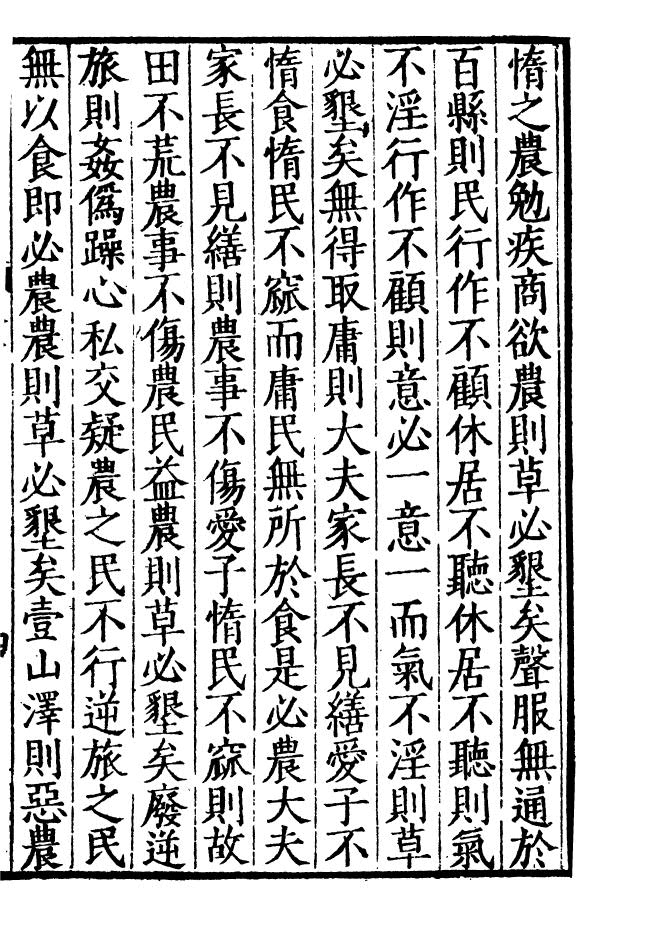 惰之農勉疾商欲農則草必墾矣聲服無通於
百縣則民行作不顧休居不聽休居不聽則氣
不淫行作不顧則意必一意一而氣不淫則草
必墾矣無得取庸則大夫家長不見繕愛子不
惰食惰民不窳而庸民無所於食是必農大夫
家長不見繕則農事不傷愛子惰民不窳則故
田不荒農事不傷農民益農則草必墾矣廢逆
旅則姦僞躁心私交疑農之民不行逆旅之民
無以食即必農農則草必墾矣壹山澤則惡農